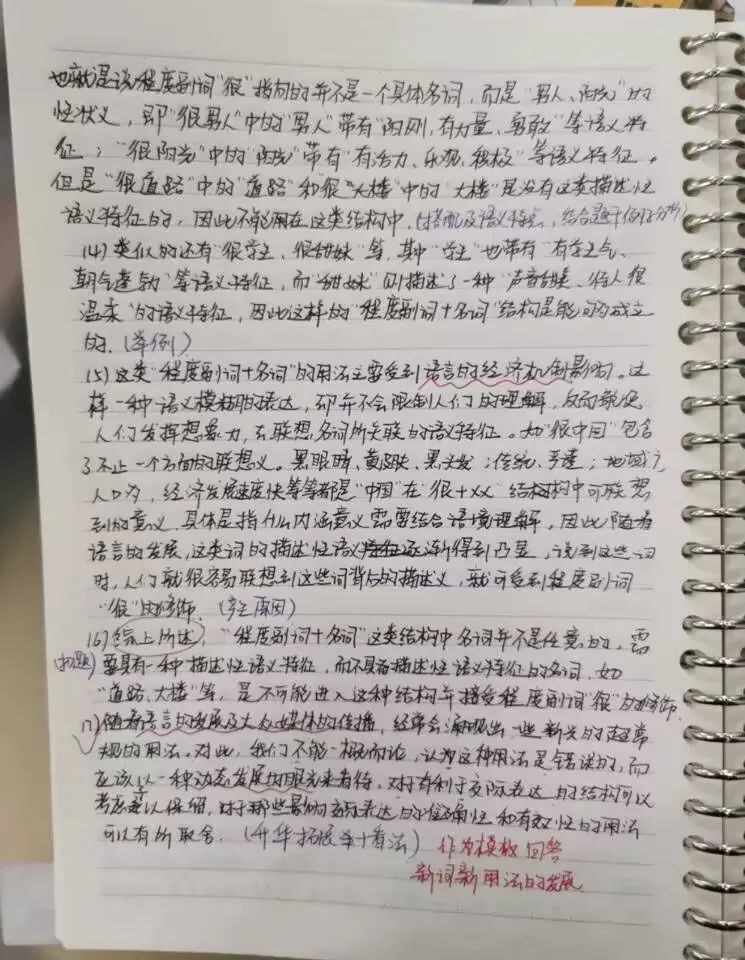 也就是说,程度副词"很"指向的并不是一个具体名词,而是"男人、阳光"的
性状义,即"很男人"中的"男人"带有"阳刚,有力量、勇敢"等语义特
征;"很阳光"中的"阳光"带有"有活力、乐观、积极"等语义特征。
但是"很道路"中的"道路"和很"大楼"中的"大楼"是没有这类描述性
语义特征的,因此不能用在这类结构中.(搭配及语义特点,结合题干例句分析)
(4)类似的还有"很学生、很甜妹"等,其中"学生"也带有"有学生气、
朝气蓬勃"等语义特征,而"甜妹"则描述了一种"声音甜美、待人很
温柔"的语义特征,因此这样的"程度副词+名词"结构是能够成立
的.(举例)
(5)这类"程度副词+名词"的用法主要受到语言的经济机制影响。这
样一种语义模糊的表达,却并不会限制人们的理解,反而能促
人们发挥想象力,去联想名词所关联的语义特征。如"很中国"包含
了不止一个方向的联想义。黑眼睛、黄皮肤、黑头发;传统、手速;地域广,
人口多,经济发展速度快等等都是"中国"在"很+XX"结构中可联想
到的意义,具体是指什么内涵意义需要结合语境理解。因此随着
语言的发展,这类词的描述性语义特征逐渐得到凸显,说到这些词
时,人们就很容易联想到这些词背后的描述义,就可受到程度副词
"很"的修饰.(产生原因)
(6)综上所述,"程度副词+名词"这类结构中名词并不是任意的,需
(扣题)要具有一种描述性语义特征,而不具有描述性语义特征的名词,如
"道路、大楼"等,是不可能进入这种结构并接受程度副词"很"的修饰.
(7)随着语言的发展及大众媒体的传播,经常会涌现出一些新兴的超常
规的用法。对此,我们不能一概而论,认为这种用法是错误的,而
应该以一种动态发展的眼光来看待,对于有利于交际表达的结构可以
考虑予以保留,对于那些影响交际表达的准确性和有效性的用法
可以有所取舍.(升华拓展+看法) 作为模板回答
新词新用法的发展